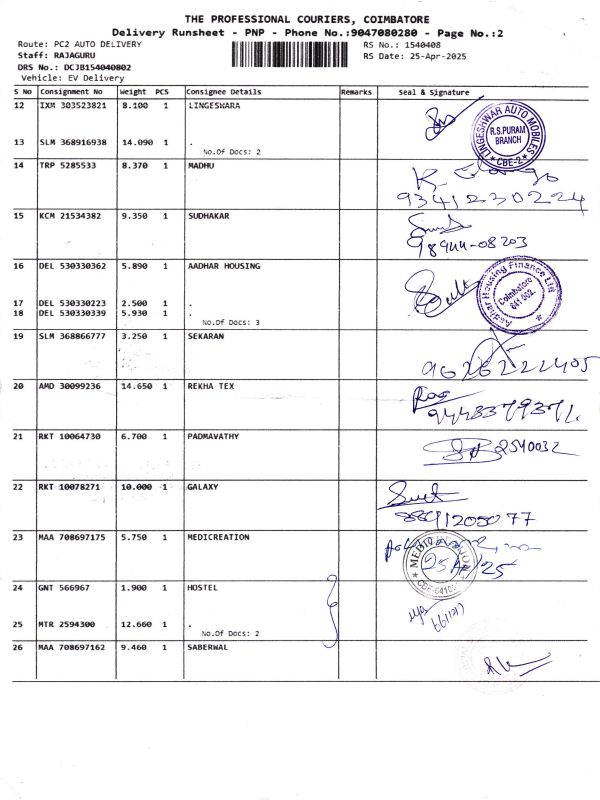 THE PROFESSIONAL COURIERS, COIMBATORE
Delivery Runsheet - PNP - Phone No.:9047080280 - Page No.:2
Route: PC2 AUTO DELIVERY RS No.: 1540408
Staff: RAJAGURU RS Date: 25-Apr-2025
DRS No.: DCJB154040802
Vehicle: EV Delivery
S No Consignment No Weight PCS Consignee Details Remarks Seal & Signature
12 IXM 303523821 8.100 1 LINGESWARA
LINGESHWAR AUTO MOBILES
R.S.PURAM
BRANCH
CBE-2
13 SLM 368916938 14.090 1 .
No.Of Docs: 2
14 TRP 5285533 8.370 1 MADHU
9341230224
15 KCM 21534382 9.350 1 SUDHAKAR
98944-08203
16 DEL 530330362 5.890 1 AADHAR HOUSING
Aadhar Housing Finance Ltd
Coimbatore
641 002.
17 DEL 530330223 2.500 1 .
18 DEL 530330339 5.930 1 .
No.Of Docs: 3
19 SLM 368866777 3.250 1 SEKARAN
9626222405
20 AMD 30099236 14.650 1 REKHA TEX
21 RKT 10064730 6.700 1 PADMAVATHY
2540032
22 RKT 10078271 10.000 1 GALAXY
23 MAA 708697175 5.750 1 MEDICREATION
25/4/25
24 GNT 566967 1.900 1 HOSTEL
25 MTR 2594300 12.660 1 .
No.Of Docs: 2
26 MAA 708697162 9.460 1 SABERWAL